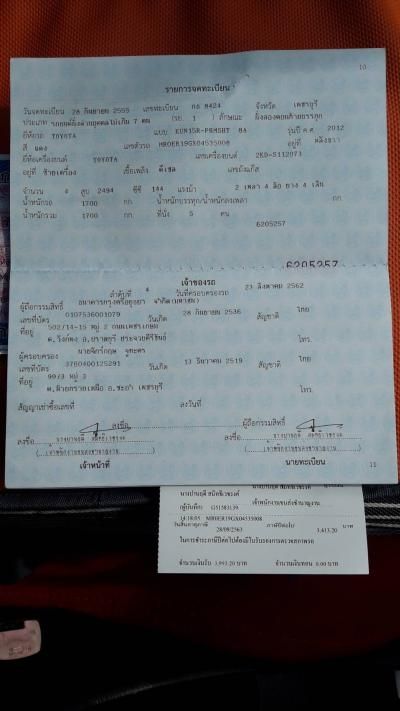 10
รายการจดทะเบียน
วันจดทะเบียน 28 กันยายน 2555 เลขทะเบียน กธ 8424 จังหวัด เพชรบุรี
ประเภท รถยนต์นั่งส่วนบุคคลไม่เกิน 7 คน (รย 1) ลักษณะ นั่งสองตอนท้ายบรรทุก
ยี่ห้อรถ TOYOTA แบบ KUN15R-PRMSHT 8A รุ่นปี ค.ศ. 2012
สี แดง เลขตัวรถ MR0ER19GX04535008 อยู่ที่
ยี่ห้อเครื่องยนต์ TOYOTA เลขเครื่องยนต์ 2KD-S112073
อยู่ที่ ซ้ายเครื่อง เชื้อเพลิง ดีเซล เลขถังแก๊ส
จำนวน 4 สูบ 2494 ซีซี 144 แรงม้า 2 เพลา 4 ล้อ ยาง 4 เส้น
น้ำหนักรถ 1700 กก. น้ำหนักบรรทุก/น้ำหนักลงเพลา กก.
น้ำหนักรวม 1700 กก. ที่นั่ง 5 คน
6205257
6205257
เจ้าของรถ
ลำดับที่ วันที่ครอบครองรถ 23 สิงหาคม 2562
ผู้ถือกรรมสิทธิ์ ธนาคารกรุงศรีอยุธยา จำกัด(มหาชน)
เลขที่บัตร 0107536001079 วันเกิด 28 กันยายน 2536 สัญชาติ ไทย
ที่อยู่ 502/14-15 หมู่ 2 ถนนเพชรเกษม
ต.วังก์พง อ.ปราณบุรี ประจวบคีรีขันธ์ โทร.
ผู้ครอบครอง
เลขที่บัตร 3760400125291 วันเกิด 13 ธันวาคม 2519 สัญชาติ ไทย
ที่อยู่ 90/3 หมู่ 3
อ.ชะอำ เพชรบุรี โทร.
สัญญาเช่าซื้อเลขที่ ลงวันที่
ลงชื่อ ผู้ถือกรรมสิทธิ์
ลงชื่อ ลงชื่อ
(เจ้าพนักงานขนส่งชำนาญงาน) (เจ้าพนักงานขนส่งชำนาญงาน)
เจ้าหน้าที่ นายทะเบียน
11
เจ้าพนักงานขนส่งชำนาญงาน
ผู้บันทึก: G51583139
14:18:05 MR0ER19GX04535008
วันสิ้นอายุภาษี 28/09/2563 ภาษีปีต่อไป 3,413.20 บาท
ในการชำระภาษีปีต่อไปต้องมีใบรับรองการตรวจสภาพรถ
จำนวนเงินรับ 3,993.20 บาท จำนวนเงินทอน 0.00 บาท